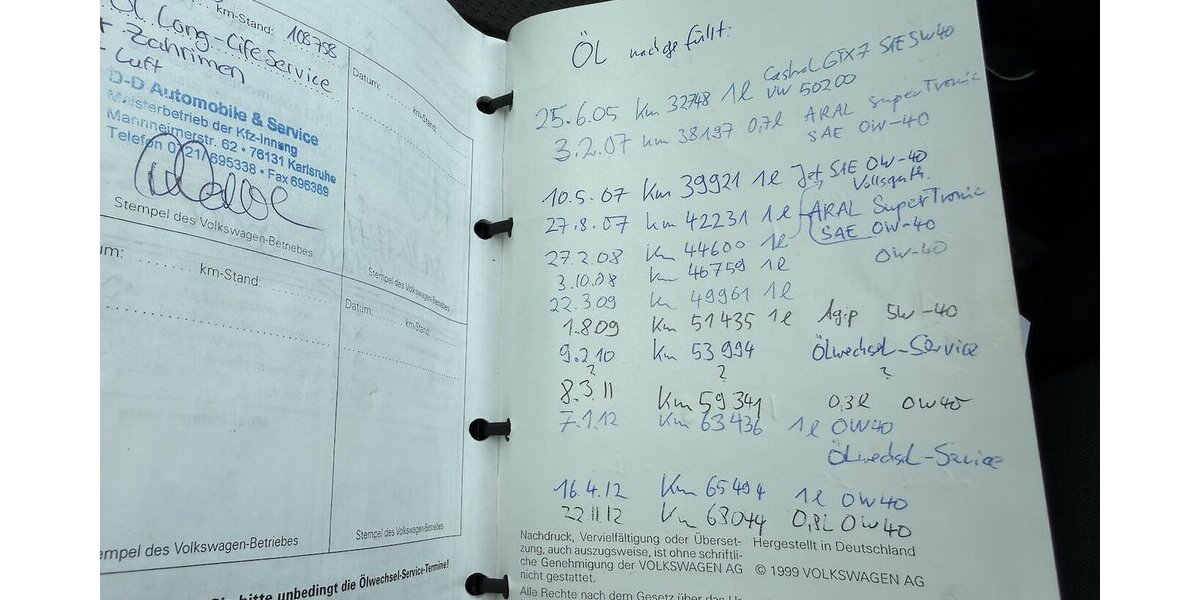 km-Stand: 108758
Öl Long-Life Service
+ Zahnrimen
Luft
D-D Automobile & Service
Meisterbetrieb der Kfz-Innung
Mannheimerstr. 62 • 76131 Karlsruhe
Telefon 0721/695338 • Fax 696389
Stempel des Volkswagen-Betriebes
Datum:
km-Stand:
Stempel des Volkswagen-Betriebes
um:
km-Stand:
empel des Volkswagen-Betriebes
Datum:
km-Stand:
Stempel des Volkswagen-Betriebes
bitte unbedingt die Ölwechsel-Service-Termine!
Öl nachgefüllt:
25.6.05 Km 32748 1l Castrol GTX7 SAE 5W40
VW 50200
3.2.07 km 38197 0,7l ARAL SuperTronic
SAE 0W-40
10.5.07 Km 39921 1l Jet SAE 0W-40
27.8.07 km 42231 1l ARAL SuperTronic
SAE 0W-40
27.2.08 Km 44600 1l 0W-40
3.10.08 km 46759 1l
22.3.09 km 49961 1l
1.8.09 Km 51435 1l Agip 5W-40
9.2.10 Km 53994 Ölwechsel-Service
? ? ?
8.3.11 Km 59341 0,3l 0W40
7.1.12 Km 63436 1l 0W40
Ölwechsel-Service
16.4.12 Km 65494 1l 0W40
22.11.12 Km 68044 0,8L 0W40
Nachdruck, Vervielfältigung oder Überset-
zung, auch auszugsweise, ist ohne schriftli-
che Genehmigung der VOLKSWAGEN AG
nicht gestattet.
Alle Rechte nach dem Gesetz über das
Hergestellt in Deutschland
© 1999 VOLKSWAGEN AG